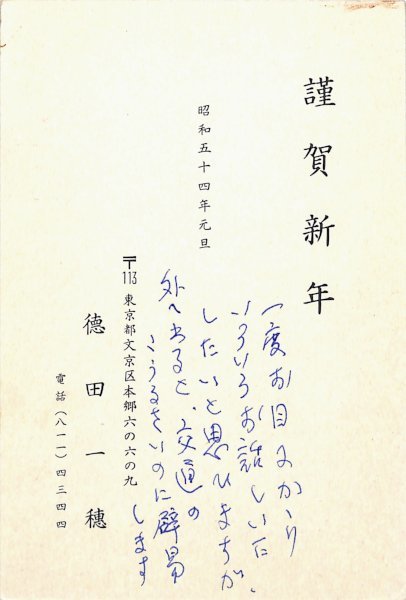 謹賀新年
昭和五十四年元旦
一度お目にかゝり
いろいろお話しいた
したいと思ひますが、
外へ出ると、交通の
うるさいのに辟易
します
〒113 東京都文京区本郷六の六の九
徳田一穂
電話(八一一)四三四四